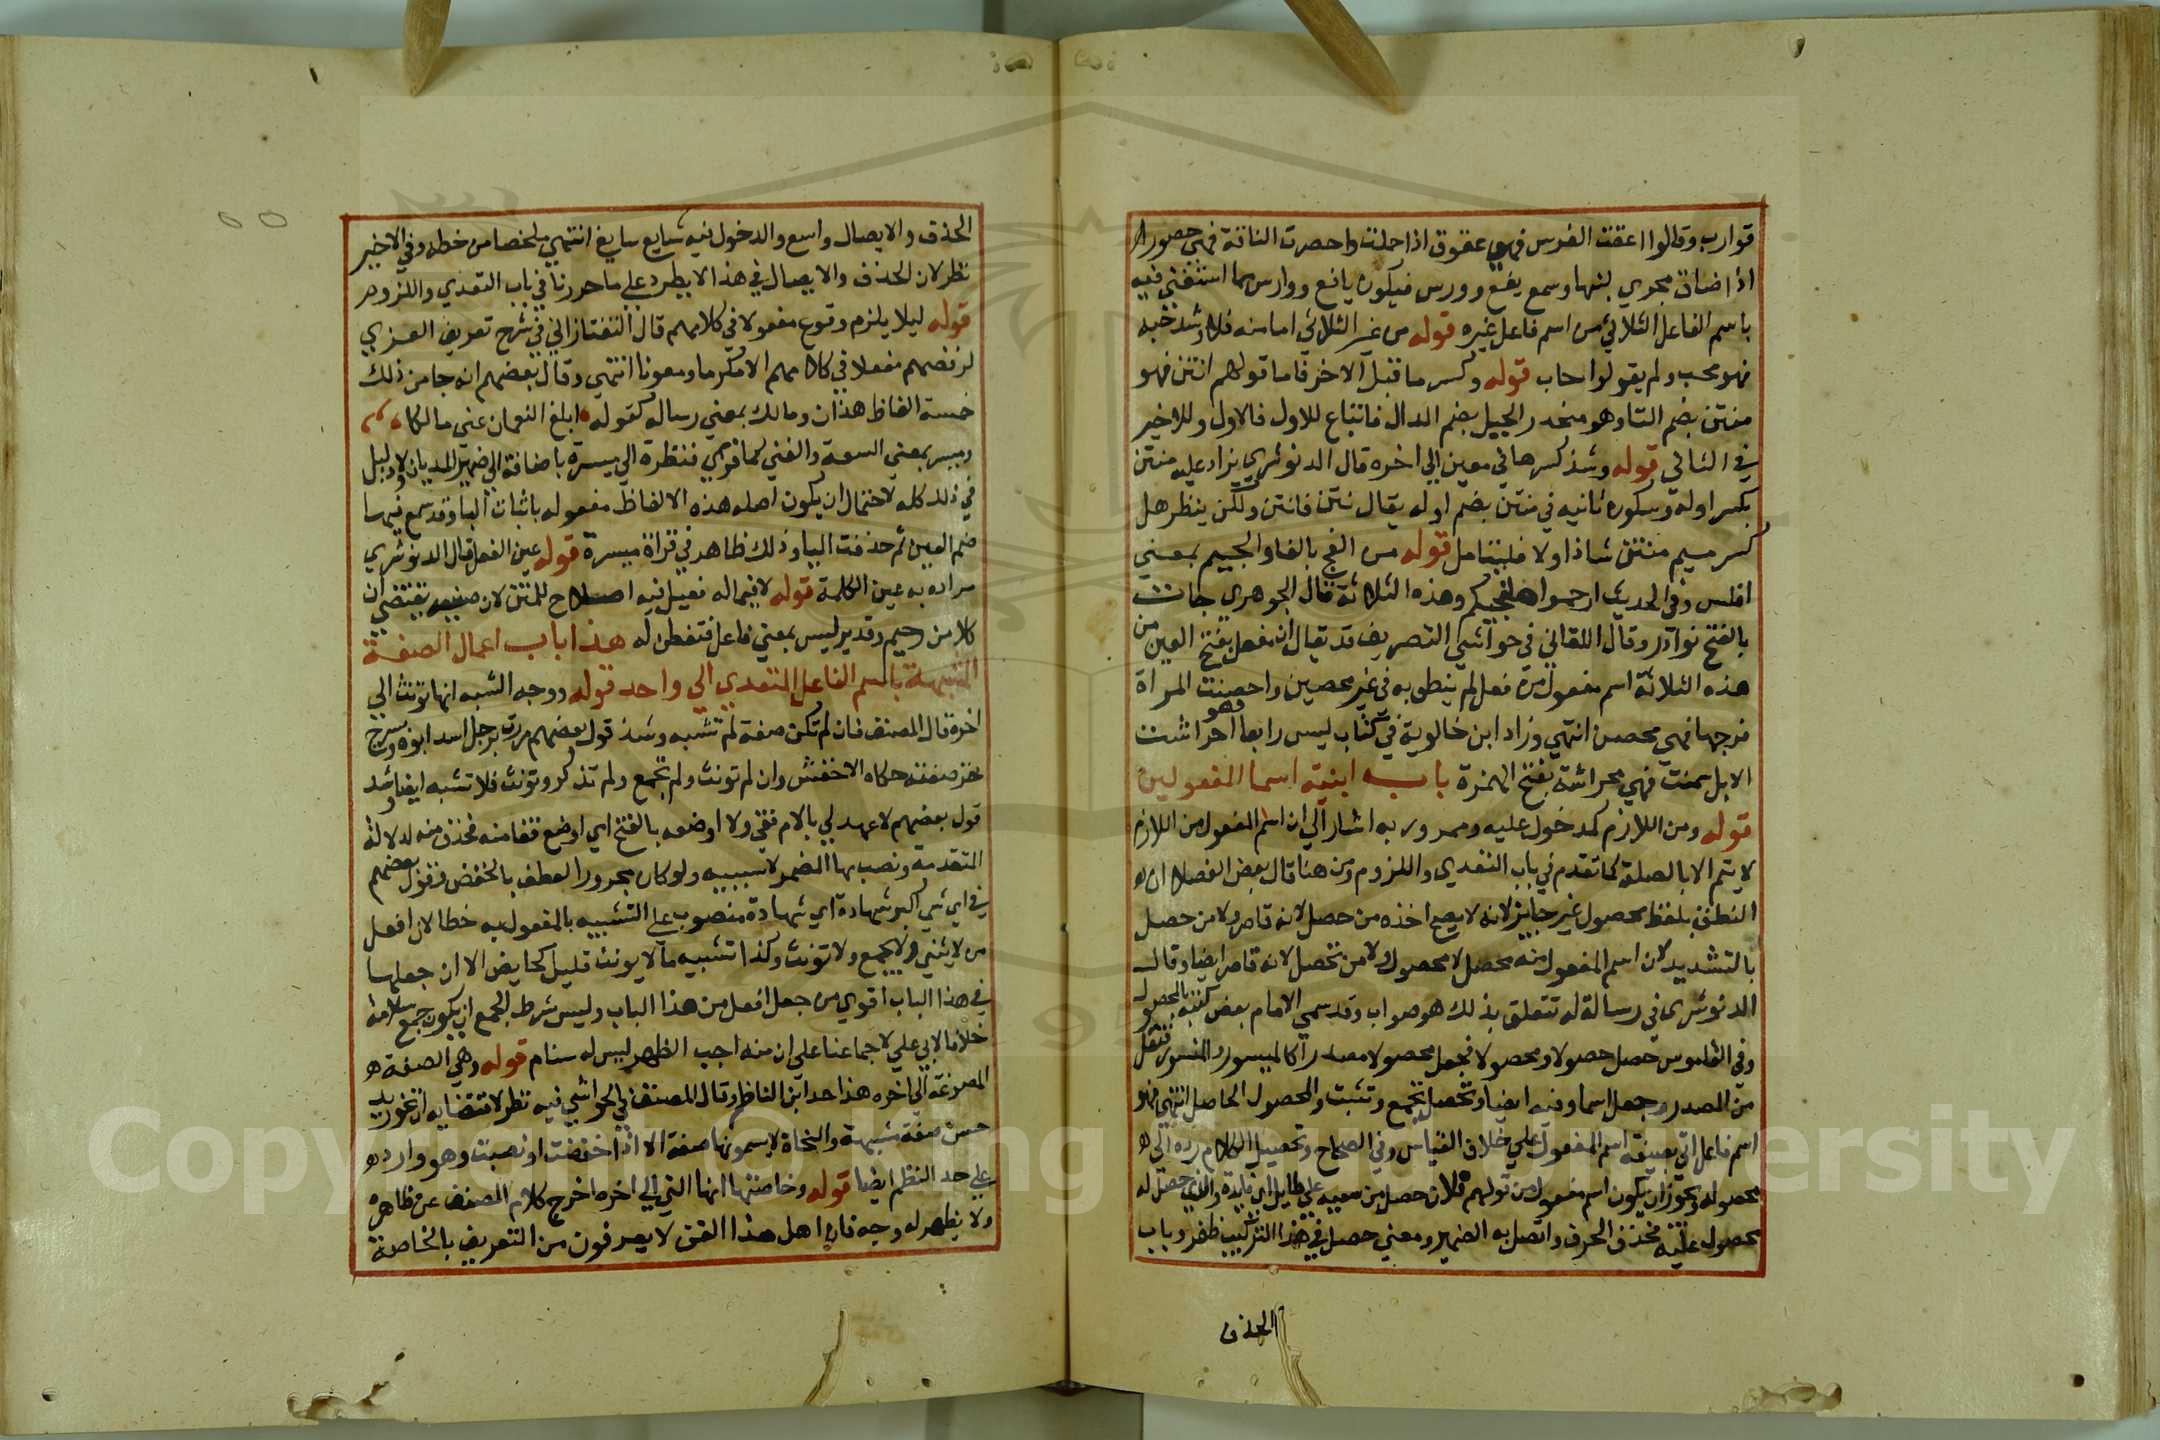 قوارب وقالوا اعقت الفرس فهي عقوق اذا حملت واحصرت الناقة فهي حصور
اذا ضاق مجري لبنها وسمع يفع وورس فيكون يافع ووارس مما استغني فيه
باسم الفاعل الثلاثي من اسم فاعل غيره قوله من غير الثلاثي اما منه فلا وشذ حبه
فهو محب ولم يقولوا حاب قوله وكسر ما قبل الاخر فاما قولهم انتن فهو
منتن بضم التا وهو منحدر الجبل بضم الدال فاتباع للاول فالاول وللاخير
في الثاني قوله وشذ كسرها في معين الي اخره قال الدنوشري يزاد عليه منتن
بكسر اوله وسكون ثانيه في منتن بضم اوله يقال نتن فانتن ولكن ينظر هل
كسر ميم منتن شاذ اولا فليتامل قوله من الفج بالفا والجيم بمعني
افلس وفي الحديث ارحموا ملفجيكم وهذه الثلاثة قال الجوهري جات
بالفتح نوادر وقال اللقاني في حواشي التصريف قد يقال ان مفعل بفتح العين من
هذه الثلاثة اسم مفعول من فعل لم ينطق به في غير محصن واحصنت المراة
فرجها فهي محصن انتهي وزاد ابن خالوية في كتاب ليس رابعا وهو احراشت
الابل سمنت فهي محراشة بفتح الهمزة باب ابنية اسما المفعولين
قوله ومن اللازم كمدخول عليه وممرور به اشار الي ان اسم المفعول من اللازم
لا يتم الا بالصلة كما تقدم في باب التعدي واللزوم ومن هنا قال بعض الفضلا ان
النطق بلفظ محصول غير جايز لانه لا يصح اخذه من حصل لانه قاصر ولا من حصل
بالتشديد لان اسم المفعول منه محصل لا محصول ولا من تحصل لانه قاصر ايضا وقال
الدنوشري في رسالة له تتعلق بذلك هو صواب وقد سمي الامام بعض كتبه بالمحصول
وفي القاموس حصل حصولا ومحصولا فجعل محصولا مصدرا كالميسور والمعسور فنقل
من المصدر وجعل اسما وفيه ايضا وتحصل تجمع وتثبت والمحصول الحاصل انتهي فهو
اسم فاعل اتي بصيغة اسم المفعول علي خلاف القياس وفي الصحاح وتحصيل الكلام رده الي
محصوله ويجوز ان يكون اسم مفعول من قولهم فلان حصل من سعيه علي طايل اي فايدة والذي حصل له
محصول عليه فحذف الحرف واتصل به الضمير ومعني حصل في هذا التركيب ظفر وباب
الحذف
الحذف والايصال واسع والدخول فيه شايع سايغ انتهي ملخصا من خطه وفي الاخير
نظر لان الحذف والايصال في هذا لا يطرد علي ما حررنا في باب التعدي واللزوم
قوله ليلا يلزم وقوع مفعولا في كلامهم قال التفتازاني في شرح تصريف العزي
لرفضهم مفعلا في كلامهم الا مكرما ومعونا انتهي وقال بعضهم انه جا من ذلك
خمسة الفاظ هذان ومالك بمعني رسالة كقوله ابلغ النعمان عني مالكا
وميسر بمعني السعة والغني كما قري فنظرة الي ميسرة باضافة الي ضمير المديان ولا دليل
في ذلك كله لاحتمال ان يكون اصله هذه الالفاظ مفعوله باثبات الواو وقد سمع فيها
ضم العين ثم حذفت التا وذلك ظاهر في قراة ميسرة قوله عين الفعل قال الدنوشري
مراده به عين الكلمة قوله لا فيما له فعيل فيه اصلاح للمتن لان صنيعه يقتضي ان
كلا من رحيم وقدير ليس بمعني فاعل فتفطن له هذا باب اعمال الصفة
المشبهة باسم الفاعل المتعدي الي واحد قوله ووجه الشبه انها تونث الي
اخره قال المصنف فان لم تكن صفة لم تشبه وشذ قول بعضهم مررت برجل اسد ابوه وسرج
خز صفته حكاه الاخفش وان لم تونث ولم تجمع ولم تذكر وتونث فلا تشبه ايضا وشذ
قول بعضهم لا عهد لي بالام قفي ولا اوضعه بالفتح اي اوضع قفا منه فحذف منه لدلالة
المتقدمة ونصب بها المضمر لا سببيه ولو كان مجرورا لعطف بالخفض فقول بعضهم
في اي شي اكبر شهادة اي شهادة منصوب علي التشبيه بالمفعول به خطا لان افعل
من لا يثني ولا يجمع ولا تونث وكذا تشبيه ما لا يونث قليل كحايض الا ان جعلها
في هذا الباب اقوي من جعل افعل من هذا الباب وليس شرط الجمع ان يكون جمع سلامة
خلافا لابي علي لاجماعنا علي ان منه اجب الظهر ليس له سنام قوله وهي الصفة
المصوغة الي اخره هذا حد ابن الناظم وقال المصنف في الحواشي فيه نظر لاقتضايه ان نحو زيد
حسن صفة مشبهة والنحاة لا يسمونها صفة الا اذا خفضت او نصبت وهو وارد
علي حد النظم ايضا قوله وخاصتها انها التي الي اخره اخرج كلام المصنف عن ظاهره
ولا يظهر له وجه فان اهل هذا الفن لا يعرفون من التعريف بالخاصة
Copyright © King Saud University